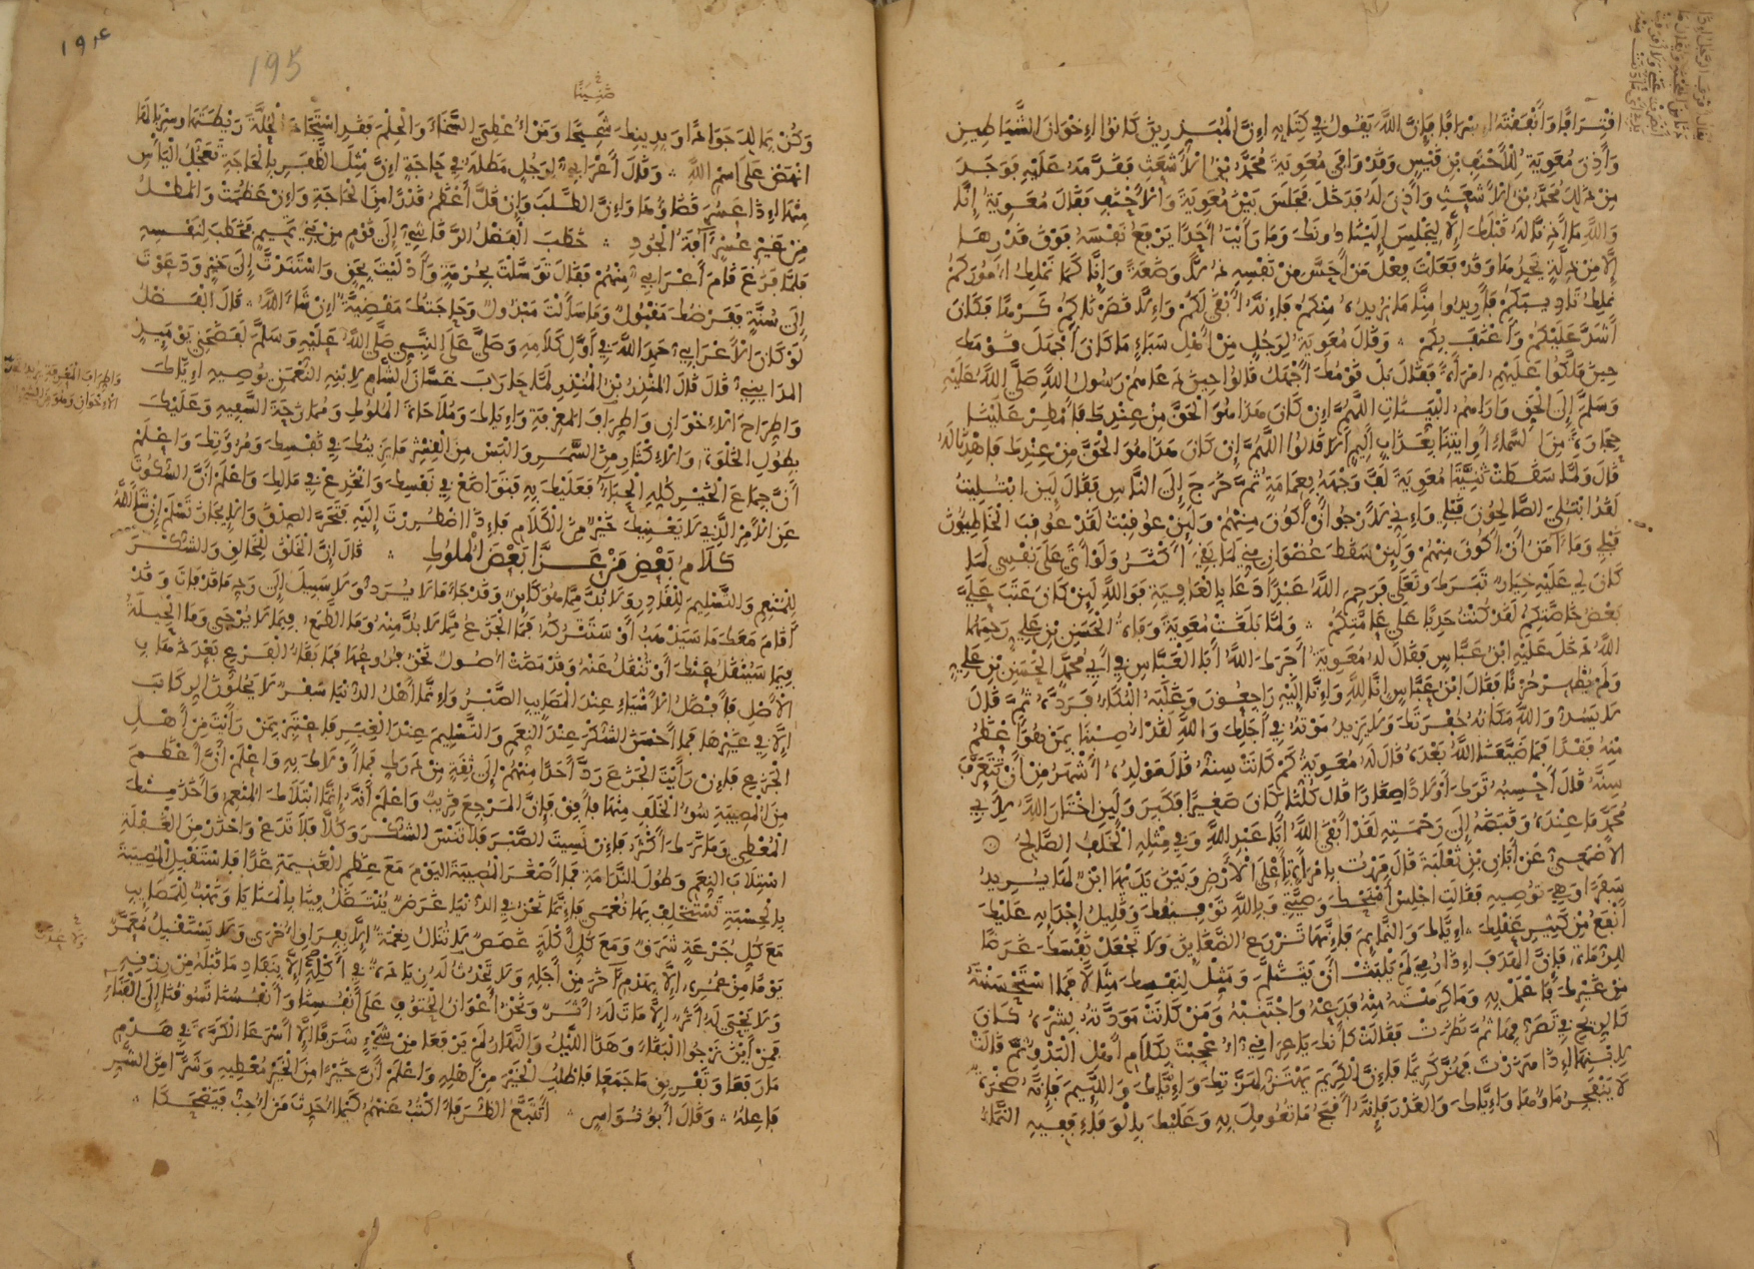 اقْتِرَافًا وَأَنْفَقْتَهُ إِسْرَافًا فَإِنَّ اللَّهَ يَقُولُ فِي كِتَابِهِ إِنَّ الْمُبَذِّرِينَ كَانُوا إِخْوَانَ الشَّيَاطِينِ
وَأَذِنَ مُعَوِيَةُ لِلْأَحْنَفِ بْنِ قَيْسٍ وَقَدْ وَافَى مُعَوِيَةَ مُحَمَّدُ بْنُ الْأَشْعَثِ فَقَدَّمَهُ عَلَيْهِ فَوَجَدَ
مِنْ ذَلِكَ مُحَمَّدُ بْنُ الْأَشْعَثِ وَأَذِنَ لَهُ فَدَخَلَ فَجَلَسَ بَيْنَ مُعَوِيَةَ وَالْأَحْنَفِ فَقَالَ مُعَوِيَةُ إِنَّا
وَاللَّهِ مَا أَذِنَّا لَهُ قَبْلَكَ إِلَّا لِيَجْلِسَ إِلَيْنَا دُونَكَ وَمَا رَأَيْتُ أَحَدًا يَرْفَعُ نَفْسَهُ فَوْقَ قَدْرِهَا
إِلَّا مِنْ ذِلَّةٍ يَجِدُهَا وَقَدْ فَعَلْتَ فِعْلَ مَنْ أَحَسَّ مِنْ نَفْسِهِ ذُلًّا وَضَعَةً وَإِنَّا كَمَا نَمْلِكُ أُمُورَكُمْ
نَمْلِكُ تَأْدِيبَكُمْ فَأَرِيدُوا مِنَّا مَا نُرِيدُهُ مِنْكُمْ فَإِنَّهُ أَبْقَى لَكُمْ وَإِلَّا قَصَرْنَاكُمْ كَرْهًا فَكَانَ
أَشَدَّ عَلَيْكُمْ وَأَعْنَفَ بِكُمْ وَقَالَ مُعَوِيَةُ لِرَجُلٍ مِنْ أَهْلِ سَبَاءٍ مَا كَانَ أَجْهَلَ قَوْمَكَ
حِينَ مَلَّكُوا عَلَيْهِمُ امْرَأَةً فَقَالَ بَلْ قَوْمُكَ أَجْهَلُ قَالُوا حِينَ دَعَاهُمْ رَسُولُ اللَّهِ صَلَّى اللَّهُ عَلَيْهِ
وَسَلَّمَ إِلَى الْحَقِّ وَأَرَاهُمُ الْبَيِّنَاتِ اللَّهُمَّ إِنْ كَانَ هَذَا هُوَ الْحَقَّ مِنْ عِنْدِكَ فَأَمْطِرْ عَلَيْنَا
حِجَارَةً مِنَ السَّمَاءِ أَوِ ائْتِنَا بِعَذَابٍ أَلِيمٍ أَلَا قَالُوا اللَّهُمَّ إِنْ كَانَ هَذَا هُوَ الْحَقَّ مِنْ عِنْدِكَ فَاهْدِنَا لَهُ
قَالَ وَلَمَّا سَقَطَتْ ثَنِيَّتَا مُعَوِيَةَ لَفَّ وَجْهَهُ بِعِمَامَةٍ ثُمَّ خَرَجَ إِلَى النَّاسِ فَقَالَ لَئِنِ ابْتُلِيتُ
لَقَدِ ابْتُلِيَ الصَّالِحُونَ قَبْلِي وَإِنِّي لَأَرْجُوا أَنْ أَكُونَ مِنْهُمْ وَلَئِنْ عُوقِبْتُ لَقَدْ عُوقِبَ الْخَاطِيُّونَ
قَبْلِي وَمَا آمَنُ أَنْ أَكُونَ مِنْهُمْ وَلَئِنْ سَقَطَ عُضْوَانِ مِنِّي لَمَا بَقِيَ أَكْثَرُ وَلَوْ أَتَى عَلَى نَفْسِي لَمَا
كَانَ لِي عَلَيْهِ خِيَارٌ تَبَرَكَ وَتَعَلَى فَرَحِمَ اللَّهُ عَبْدًا دَعَا بِالْعَافِيَةِ فَوَاللَّهِ لَئِنْ كَانَ عَتَبَ عَلَيَّ
بَعْضُ خَاصَّتِكُمْ لَقَدْ كُنْتُ حَدِبًا عَلَى عَامَّتِكُمْ وَلَمَّا بَلَغَتْ مُعَوِيَةَ وَفَاةُ الْحَسَنِ بْنِ عَلِيٍّ رَحِمَهُمَا
اللَّهُ دَخَلَ عَلَيْهِ ابْنُ عَبَّاسٍ فَقَالَ لَهُ مُعَوِيَةُ آجَرَكَ اللَّهُ أَبَا الْعَبَّاسِ فِي أَبِي مُحَمَّدٍ الْحَسَنِ بْنِ عَلِيٍّ
وَلَمْ يُظْهِرْ حُزْنًا فَقَالَ ابْنُ عَبَّاسٍ إِنَّا لِلَّهِ وَإِنَّا إِلَيْهِ رَاجِعُونَ وَغَلَبَهُ الْبُكَاءُ فَرَدَّهُ ثُمَّ قَالَ
لَا يَسُدُّ وَاللَّهِ مَكَانَهُ حُفْرَتَكَ وَلَا يَزِيدُ مَوْتُهُ فِي أَجَلِكَ وَاللَّهِ لَقَدْ أُصِبْنَا بِمَنْ هُوَ أَعْظَمُ
مِنْهُ فَقْدًا فَمَا ضَيَّعَنَا اللَّهُ بَعْدَهُ قَالَ لَهُ مُعَوِيَةُ كَمْ كَانَتْ سِنُّهُ قَالَ مَوْلِدُهُ أَشْهَرُ مِنْ أَنْ تَتَعَرَّفَ
سِنَّهُ قَالَ أَحْسِبُهُ تَرَكَ أَوْلَادًا صِغَارًا قَالَ كُلُّنَا كَانَ صَغِيرًا فَكَبِرَ وَلَئِنِ اخْتَارَ اللَّهُ لِأَبِي
مُحَمَّدٍ مَا عِنْدَهُ وَقَبَضَهُ إِلَى رَحْمَتِهِ لَقَدْ أَبْقَى اللَّهُ أَبَا عَبْدِ اللَّهِ وَفِي مِثْلِهِ الْخَلَفُ الصَّالِحُ
الْأَصْمَعِيُّ عَنْ أَبَانَ بْنِ تَغْلِبَ قَالَ مَرَرْتُ بِامْرَأَةٍ بِأَعْلَى الْأَرْضِ وَبَيْنَ يَدَيْهَا ابْنٌ لَهَا يُرِيدُ
سَفَرًا وَهِيَ تُوصِيهِ فَقَالَتِ اجْلِسْ أَمْنَحْكَ وَصِيَّتِي وَبِاللَّهِ تَوْفِيقُكَ وَقَلِيلُ إِجْدَايِهِ عَلَيْكَ
أَنْفَعُ مِنْ كَثِيرِ عَقْلِكَ إِيَّاكَ وَالنَّمَايِمَ فَإِنَّهَا تَزْرَعُ الضَّغَايِنَ وَلَا تَجْعَلْ نَفْسَكَ غَرَضًا
لِلرُّمَاةِ فَإِنَّ الْهَدَفَ إِذَا رُمِيَ لَمْ يَلْبَثْ أَنْ يَنْثَلِمَ وَمَثِّلْ لِنَفْسِكَ مِثَالًا فَمَا اسْتَحْسَنْتَهُ
مِنْ غَيْرِكَ فَاعْمَلْ بِهِ وَمَا كَرِهْتَهُ مِنْهُ فَدَعْهُ وَاجْتَنِبْهُ وَمَنْ كَانَتْ مَوَدَّتُهُ بِشْرَهُ كَانَ
كَالرِّيحِ فِي تَصَرُّفِهَا ثُمَّ نَظَرَتْ فَقَالَتْ كَأَنَّكَ يَا عِرَاقِيُّ أُعْجِبْتَ بِكَلَامِ أَهْلِ الْبَدْوِ ثُمَّ قَالَتْ
لِابْنِهَا إِذَا هَزَزْتَ فَهُزَّ كَرِيمًا فَإِنَّ الْكَرِيمَ يَهْتَزُّ لِهَزَّتِكَ وَإِيَّاكَ وَاللَّئِيمَ فَإِنَّهُ صَخْرَةٌ
لَا يَنْفَجِرُ مَاؤُهَا وَإِيَّاكَ وَالْغَدْرَ فَإِنَّهُ أَقْبَحُ مَا تُعُومِلَ بِهِ وَعَلَيْكَ بِالْوَفَاءِ فَفِيهِ النَّمَاءُ
١٩٤
195
ضَنِينًا
وَكُنْ بِمَالِكَ جَوَادًا وَبِدِينِكَ شَحِيحًا وَمَنْ أُعْطِيَ السَّخَاءَ وَالْحِلْمَ فَقَدِ اسْتَجَادَ الْحُلَّةَ رَيْطَتَهَا وَسِرْبَالَهَا
انْهَضْ عَلَى اسْمِ اللَّهِ وَقَالَ أَعْرَابِيٌّ لِرَجُلٍ مَطَلَهُ فِي حَاجَةٍ إِنَّ مِثْلَ الظَّفَرِ بِالْحَاجَةِ تَعَجُّلُ الْيَأْسِ
مِنْهَا إِذَا عَسُرَ قَضَاؤُهَا وَإِنَّ الطَّلَبَ وَإِنْ قَلَّ أَعْظَمُ قَدْرًا مِنَ الْحَاجَةِ وَإِنْ عَظُمَتْ وَالْمَطْلُ
مِنْ غَيْرِ عُسْرٍ آفَةُ الْجُودِ خَطَبَ الْفَضْلُ الرَّقَاشِيُّ إِلَى قَوْمٍ مِنْ بَنِي تَمِيمٍ فَخَطَبَ لِنَفْسِهِ
فَلَمَّا فَرَغَ قَامَ أَعْرَابِيٌّ مِنْهُمْ فَقَالَ تَوَسَّلْتَ بِحُرْمَةٍ وَأَدْلَيْتَ بِحَقٍّ وَاسْتَنَدْتَ إِلَى خَيْرٍ وَدَعَوْتَ
إِلَى سُنَّةٍ فَفَرْضُكَ مَقْبُولٌ وَمَا سَأَلْتَ مَبْذُولٌ وَحَاجَتُكَ مَقْضِيَّةٌ إِنْ شَاءَ اللَّهُ قَالَ الْفَضْلُ
لَوْ كَانَ الْأَعْرَابِيُّ حَمِدَ اللَّهَ فِي أَوَّلِ كَلَامِهِ وَصَلَّى عَلَى النَّبِيِّ صَلَّى اللَّهُ عَلَيْهِ وَسَلَّمَ لَفَضَحَنِي يَوْمَيِذٍ
الْمَدَايِنِيُّ قَالَ قَالَ الْمُنْذِرُ بْنُ الْمُنْذِرِ لَمَّا حَارَبَ غَسَّانَ الشَّامِ لِابْنِهِ النُّعْمَنِ يُوصِيهِ إِيَّاكَ
وَاطِّرَاحَ الْإِخْوَانِ وَاطِّرَافَ الْمَعْرِفَةِ وَإِيَّاكَ وَمُلَاحَاةَ الْمُلُوكِ وَمُمَازَحَةَ السَّفِيهِ وَعَلَيْكَ
بِطُولِ الْخَلْوَةِ وَالْإِكْثَارِ مِنَ السَّمَرِ وَالْبَسْ مِنَ الْقِشْرِ مَا يَزِينُكَ فِي نَفْسِكَ وَمُرُوَّتِكَ وَاعْلَمْ
أَنَّ جِمَاعَ الْخَيْرِ كُلِّهِ الْحَيَاءُ فَعَلَيْكَ بِهِ فَتَوَاضَعْ فِي نَفْسِكَ وَانْخَدِعْ فِي مَالِكَ وَاعْلَمْ أَنَّ السُّكُوتَ
عَنِ الْأَمْرِ الَّذِي لَا يَعْنِيكَ خَيْرٌ مِنَ الْكَلَامِ فَإِذَا اضْطُرِرْتَ إِلَيْهِ فَتَحَرَّ الصِّدْقَ وَالْإِيجَازَ تَسْلَمْ إِنْ شَاءَ اللَّهُ
كَلَامُ بَعْضِ مَنْ عَزَّا بَعْضَ الْمُلُوكِ قَالَ إِنَّ الْخَلْقَ لِلْخَالِقِ وَالشُّكْرَ
لِلْمُنْعِمِ وَالتَّسْلِيمَ لِلْقَادِرِ وَلَا بُدَّ مِمَّا هُوَ كَايِنٌ وَقَدْ جَاءَ مَا لَا يُرَدُّ وَلَا سَبِيلَ إِلَى رَدِّ مَا قَدْ فَاتَ وَقَدْ
أَقَامَ مَعَكَ مَا سَيَذْهَبُ أَوْ سَتَتْرُكُهُ فَمَا الْجَزَعُ مِمَّا لَا بُدَّ مِنْهُ وَمَا الطَّمَعُ فِيمَا لَا يُرْجَى وَمَا الْحِيلَةُ
فِيمَا سَيُنْقَلُ عَنْكَ أَوْ تُنْقَلُ عَنْهُ وَقَدْ مَضَتْ أُصُولٌ نَحْنُ فُرُوعُهَا فَمَا بَقَاءُ الْفَرْعِ بَعْدَ ذَهَابِ
الْأَصْلِ فَأَفْضَلُ الْأَشْيَاءِ عِنْدَ الْمَصَايِبِ الصَّبْرُ وَإِنَّمَا أَهْلُ الدُّنْيَا سَفْرٌ لَا يَحُلُّونَ الرِّكَابَ
إِلَّا فِي غَيْرِهَا فَمَا أَحْسَنَ الشُّكْرَ عِنْدَ النِّعَمِ وَالتَّسْلِيمَ عِنْدَ الْغِيَرِ فَاعْتَبِرْ بِمَنْ رَأَيْتَ مِنْ أَهْلِ
الْجَزَعِ فَإِنْ رَأَيْتَ الْجَزَعَ رَدَّ أَحَدًا مِنْهُمْ إِلَى ثِقَةٍ مِنْ دَرَكٍ فَمَا أَوْلَاكَ بِهِ وَاعْلَمْ أَنَّ أَعْظَمَ
مِنَ الْمُصِيبَةِ سُوءُ الْخَلَفِ مِنْهَا فَأَفِقْ فَإِنَّ الْمَرْجِعَ قَرِيبٌ وَاعْلَمْ أَنَّهُ إِنَّمَا ابْتَلَاكَ الْمُنْعِمُ وَأَخَذَ مِنْكَ
الْمُعْطِي وَمَا تَرَكَ أَكْثَرُ فَإِنْ نَسِيتَ الصَّبْرَ فَلَا تَنْسَ الشُّكْرَ وَكُلًّا فَلَا تَدَعْ وَاحْذَرْ مِنَ الْغَفْلَةِ
اسْتِلَابَ النِّعَمِ وَطُولَ النَّدَامَةِ فَمَا أَصْغَرَ الْمُصِيبَةَ الْيَوْمَ مَعَ عِظَمِ الْغَنِيمَةِ غَدًا فَاسْتَقْبِلِ الْمُصِيبَةَ
بِالْحِسْبَةِ تَسْتَخْلِفْ بِهَا نُعْمَى فَإِنَّمَا نَحْنُ فِي الدُّنْيَا غَرَضٌ يُنْتَضَلُ فِينَا بِالْمَنَايَا وَنَهْبٌ لِلْمَصَايِبِ
مَعَ كُلِّ جُرْعَةٍ شَرَقٌ وَمَعَ كُلِّ أَكْلَةٍ غَصَصٌ لَا تُنَالُ نِعْمَةٌ إِلَّا بِفِرَاقِ أُخْرَى وَلَا يَسْتَقْبِلُ مُعَمَّرٌ
يَوْمًا مِنْ عُمُرِهِ إِلَّا بِهَدْمِ آخَرَ مِنْ أَجَلِهِ وَلَا تَحْدُثُ لَهُ زِيَادَةٌ فِي أَكْلِهِ إِلَّا بِنَفَادِ مَا قَبْلَهُ مِنْ رِزْقِهِ
وَلَا يَحْيَى لَهُ أَثَرٌ إِلَّا مَاتَ لَهُ أَثَرٌ وَنَحْنُ أَعْوَانُ الْحُتُوفِ عَلَى أَنْفُسِنَا وَأَنْفُسُنَا تَسُوقُنَا إِلَى الْفَنَاءِ
فَمِنْ أَيْنَ نَرْجُوا الْبَقَاءَ وَهَذَا اللَّيْلُ وَالنَّهَارُ لَمْ يَرْفَعَا مِنْ شَيْءٍ شَرَفًا إِلَّا أَسْرَعَا الْكَرَّةَ فِي هَدْمِ
مَا رَفَعَا وَتَفْرِيقِ مَا جَمَعَا فَاطْلُبِ الْخَيْرَ مِنْ أَهْلِهِ وَاعْلَمْ أَنَّ خَيْرًا مِنَ الْخَيْرِ مُعْطِيهِ وَشَرًّا مِنَ الشَّرِّ
فَاعِلُهُ وَقَالَ أَبُو نُوَاسٍ أَتَتَبَّعُ الظُّرَفَاءَ أَكْتُبُ عَنْهُمْ كَيْمَا أُحَدِّثَ مَنْ أُحِبُّ فَيَضْحَكَا